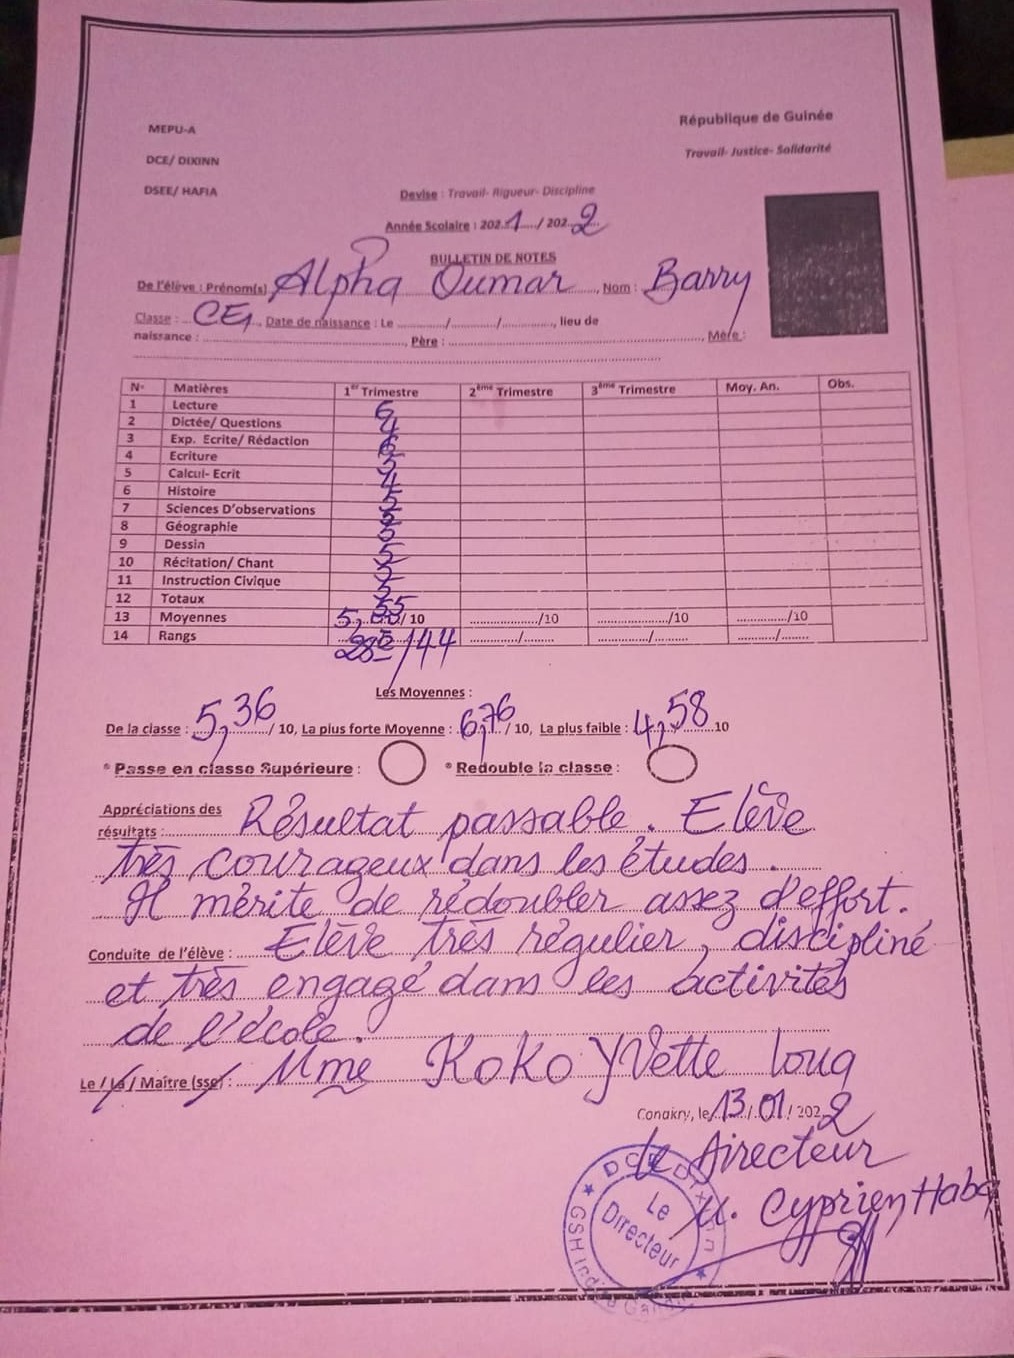 MEPU-A
République de Guinée
DCE/ DIXINN
Travail- Justice- Solidarité
DSEE/ HAFIA
Devise : Travail- Rigueur- Discipline
Année Scolaire : 2021/2022
BULLETIN DE NOTES
De l'élève : Prénom(s) Alpha Oumar, Nom : Barry
Classe : CE1, Date de naissance : Le ........../........../............, lieu de
naissance : ......................, Père : ......................, Mère :
N- Matières 1er Trimestre 2ème Trimestre 3ème Trimestre Moy. An. Obs.
1 Lecture 6
2 Dictée/ Questions 4
3 Exp. Ecrite/ Rédaction
4 Ecriture
5 Calcul- Ecrit 4
6 Histoire
7 Sciences D'observations
8 Géographie
9 Dessin 5
10 Récitation/ Chant
11 Instruction Civique
12 Totaux 55
13 Moyennes /10 ............/10 ............/10 ............/10
14 Rangs 28e/44 ........../........ ........../........ ........../........
Les Moyennes :
De la classe : 5,36/ 10, La plus forte Moyenne : 6,76/ 10, La plus faible : 4,58 10
* Passe en classe Supérieure : * Redouble la classe :
Appréciations des
résultats : Résultat passable. Elève
très courageux dans les études.
Il mérite de rédoubler assez d'effort.
Conduite de l'élève : Elève très régulier, discipliné
et très engagé dans les activités
de l'école.
Le / La / Maître (sse) : Mme Koko Yvette Loua
Conakry, le 13/01/2022
Le Directeur
M. Cyprien Haba
DCE Dixinn
Le
Directeur